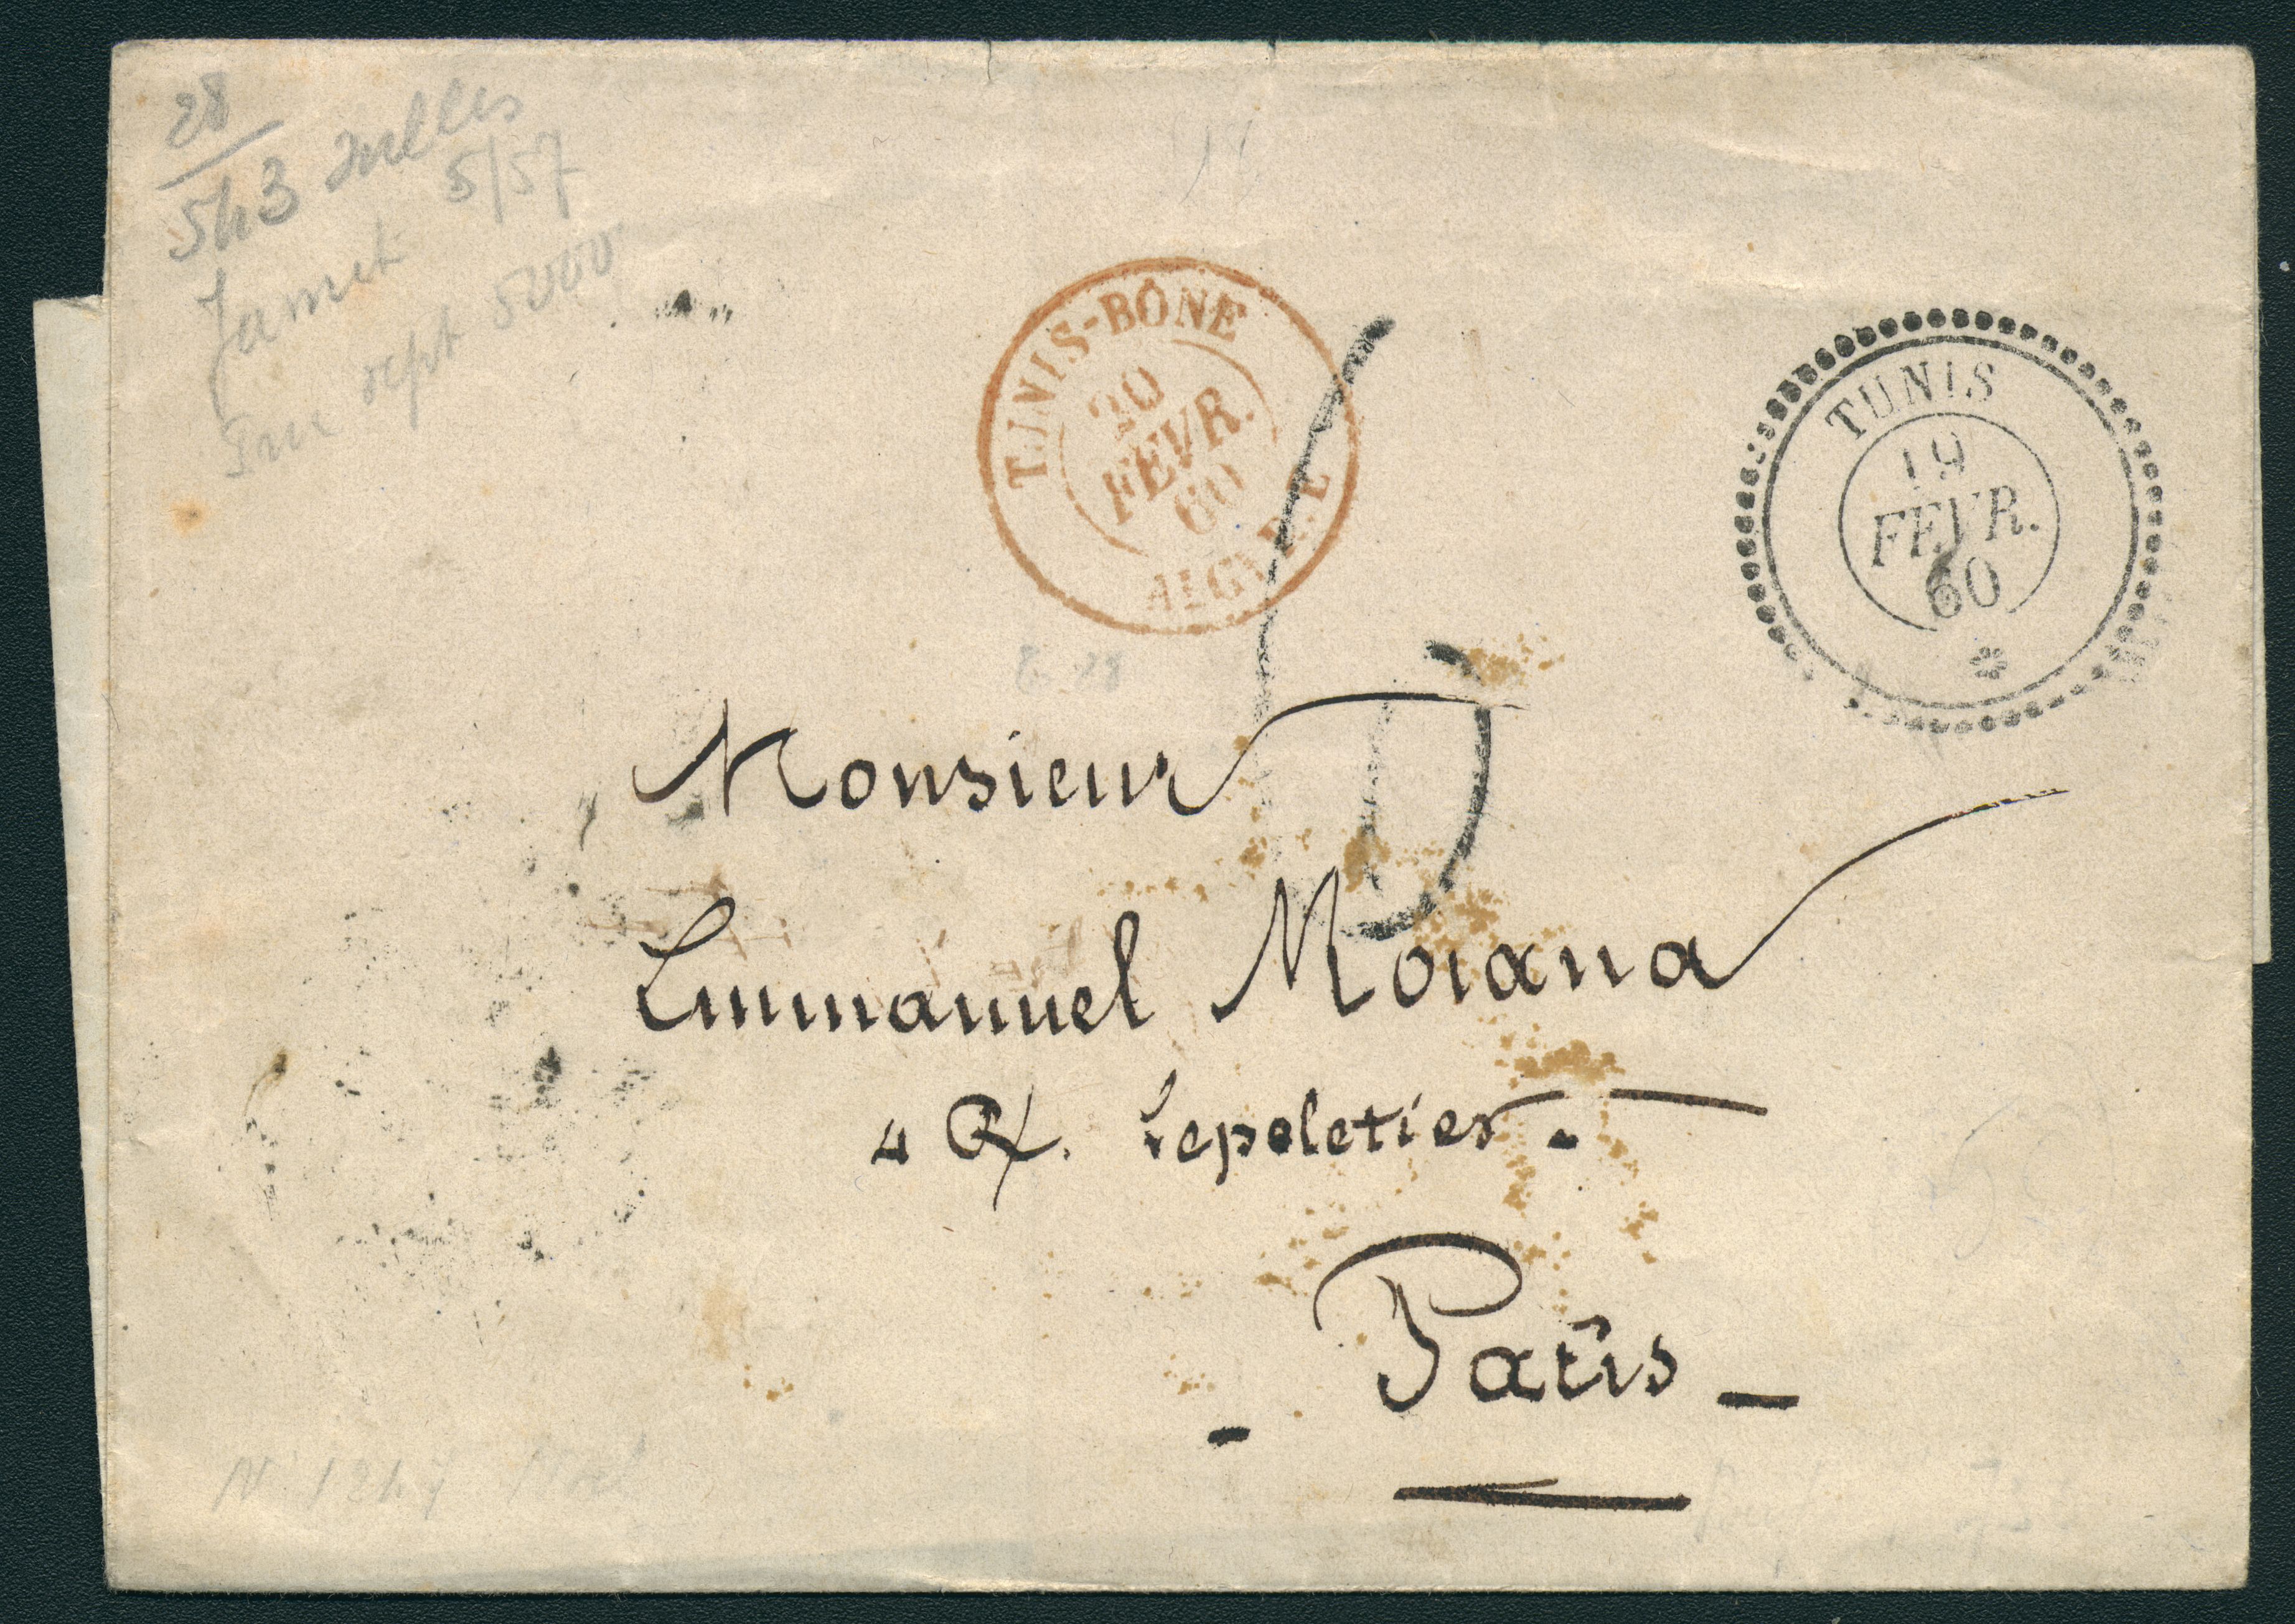 28
543
5/57
Jamet
5000
TUNIS-BÔNE
20
FEVR.
60
ALG
TUNIS
19
FEVR.
60
Monsieur
Emmanuel Morana
4 R. Lepeletier.
- Paris -